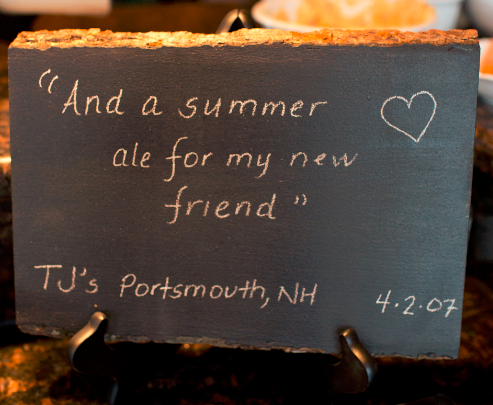 "And a summer
ale for my new
friend"
TJ's Portsmouth, NH
4.2.07